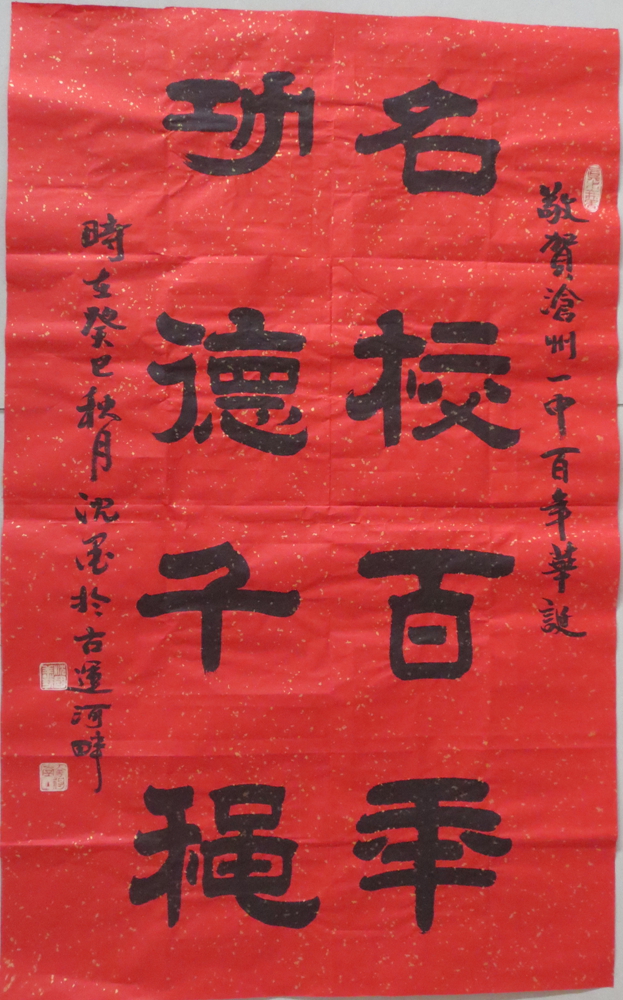 敬賀滄州一中百年華誕
名校百年
功德千穐
時在癸巳秋月沈墨於古運河畔